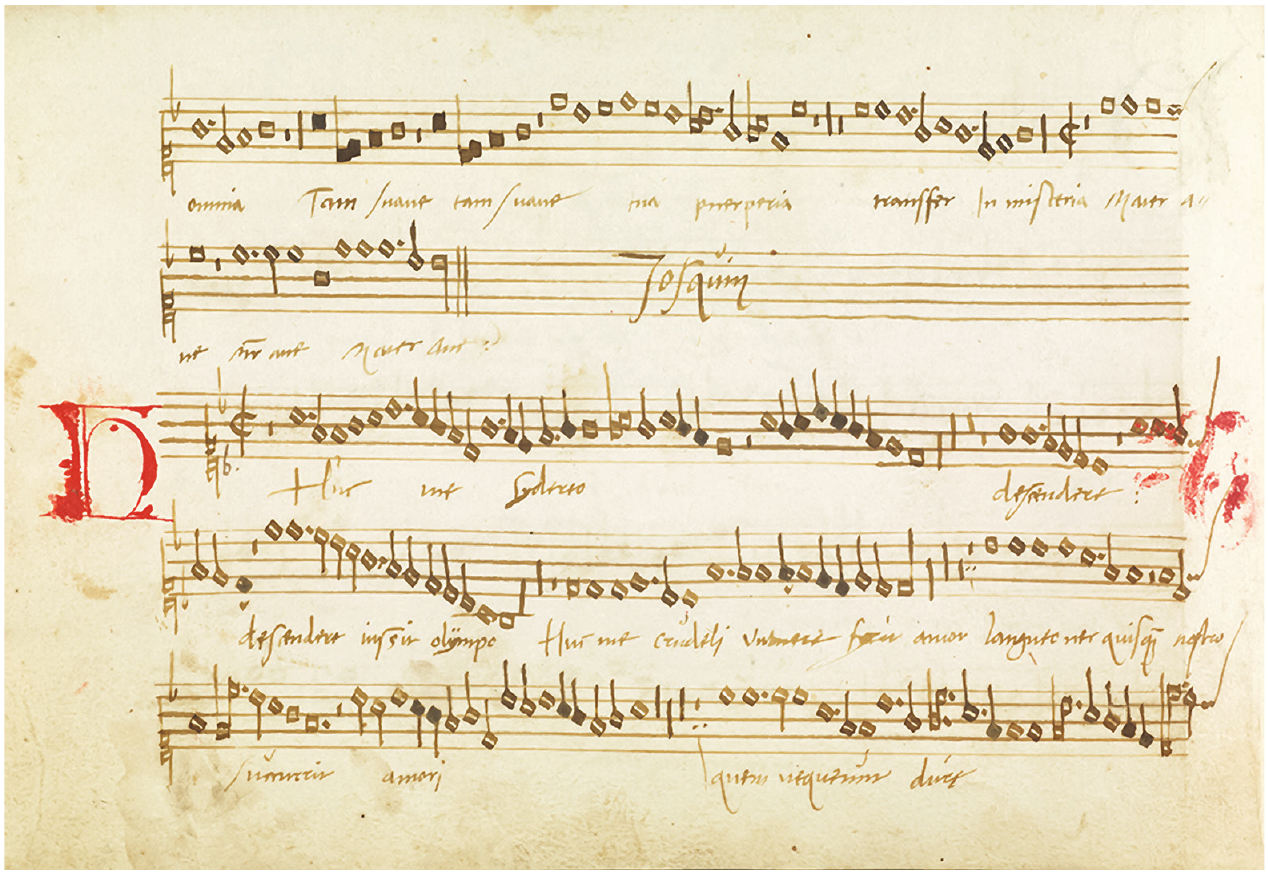 omnia Tam suave tam suave tua puerperia transffer In misteria Mater a
ne Mater ave
Josquin
Huc me sydereo descendere
descendere iussit olympo Huc me crudeli vulnere fecit amor langueo nec quisq̃ nostro
succurrit amori quem nequeunt dure